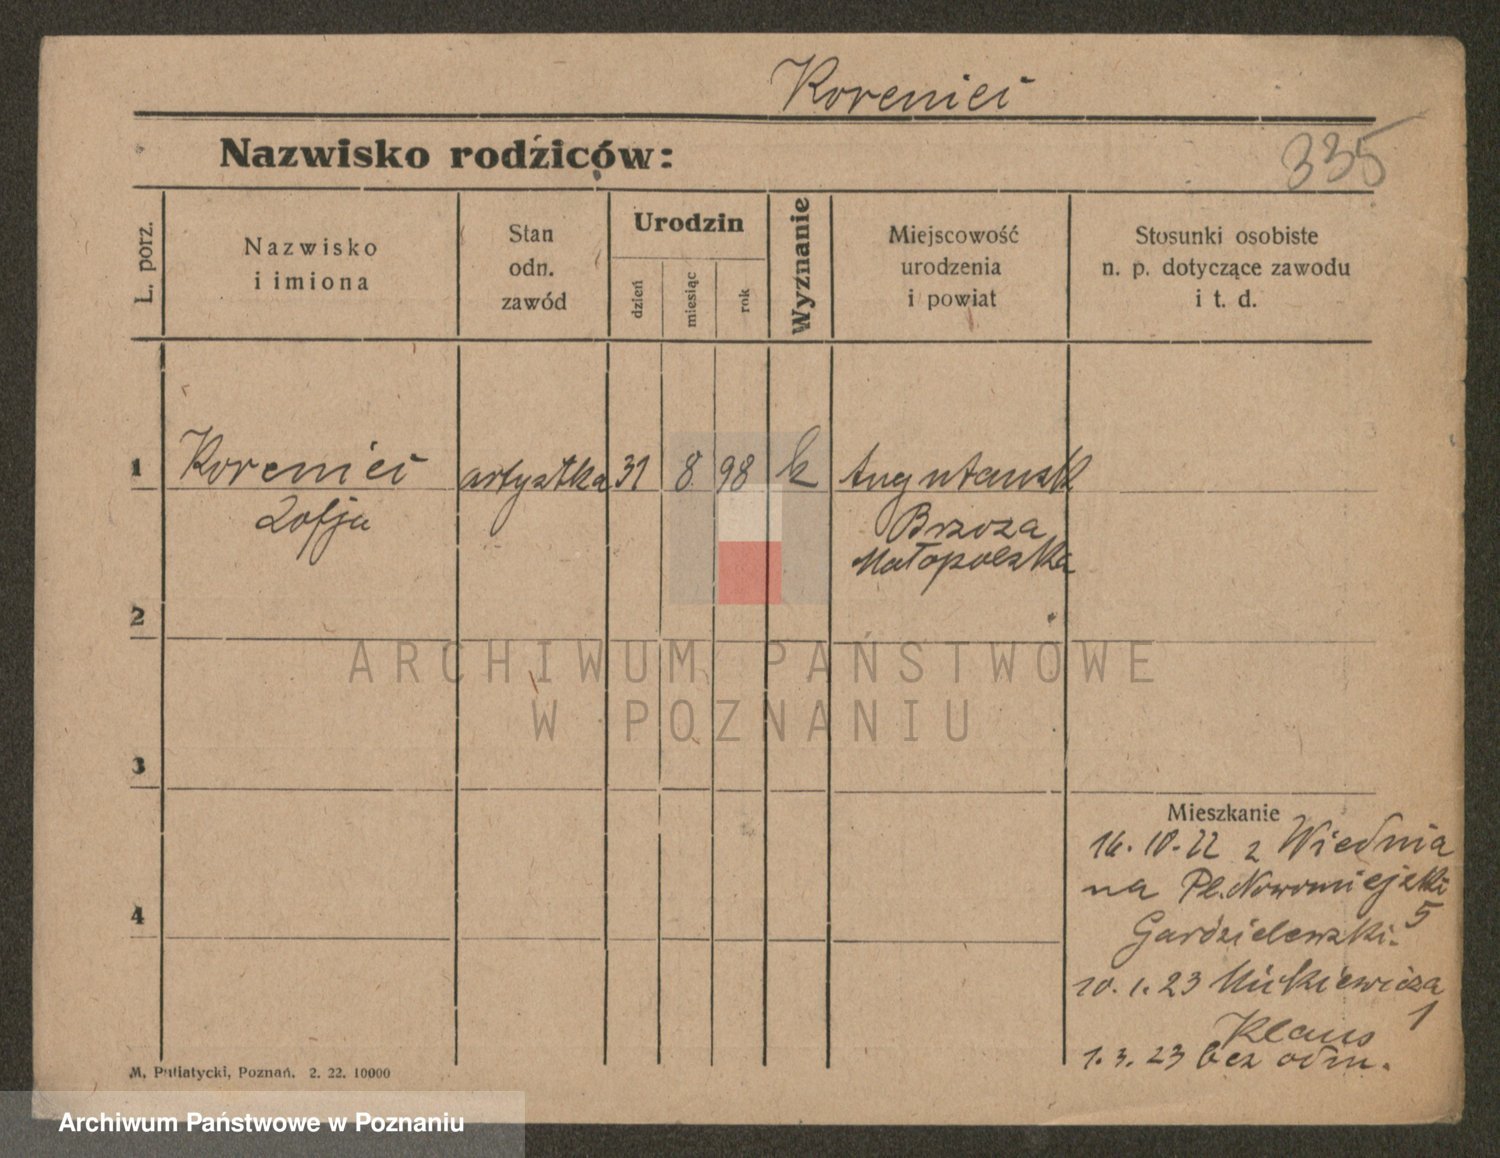 Korenieć
335
Nazwisko rodziców:
L. porz.
Nazwisko
i imiona
Stan
odn.
zawód
Urodzin
dzień
miesiąc
rok
Wyznanie
Miejscowość
urodzenia
i powiat
Stosunki osobiste
n. p. dotyczące zawodu
i t. d.
1
Korenieć artystka 31 8 98 k
Zofja Brzoza
Małopolska
2
ARCHIWUM PAŃSTWOWE
W POZNANIU
3
Mieszkanie
16.10.22 z Wiednia
na Pl. Nowomiejski
5
4
Gardzielewski.
10.1.23 Mickiewicza
1
Klaus
1.3.23 bez odm.
M. Putiatycki, Poznań. 2. 22. 10000
Archiwum Państwowe w Poznaniu